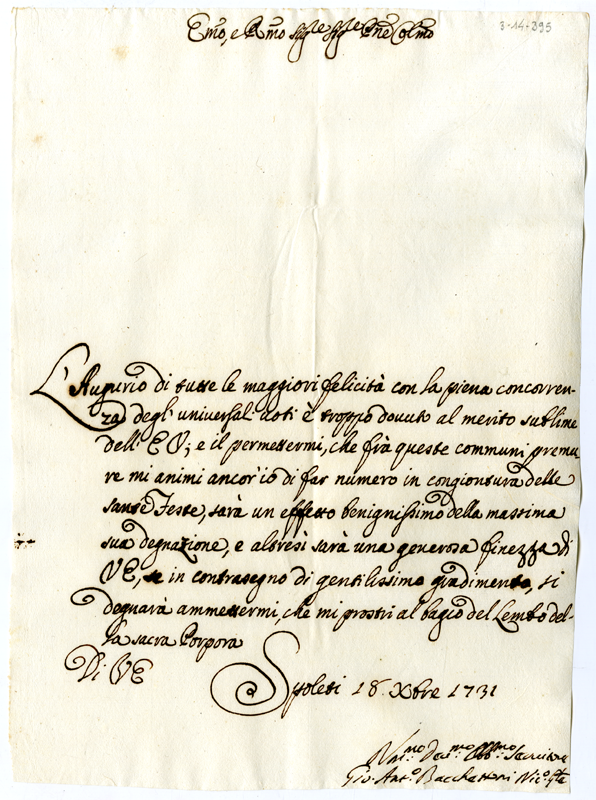 Emo, e Rmo Sig.re Sig.re Pne Colmo
3-14-395
L'Augurio di tutte le maggiori felicità con la piena concorren-
za degl'universali voti è troppo dovuto al merito sublime
dell'EV; e il permettermi, che frà queste communi premu
re mi animi ancor'io di far numero in congiontura delle
sante Feste, sarà un effetto benignissimo della massima
sua degnazione, e altresì sarà una generosa finezza di
VE, se in contrasegno di gentilissimo gradimento, si
degnarà ammettermi, che mi prostri al bagio del Lembo del-
la sacra Porpora
Di VE
Spoleti 18. Xbre 1731
Devmo Obbmo Servitore
Gio: Ant.o Bacchettoni Vic.o Gle